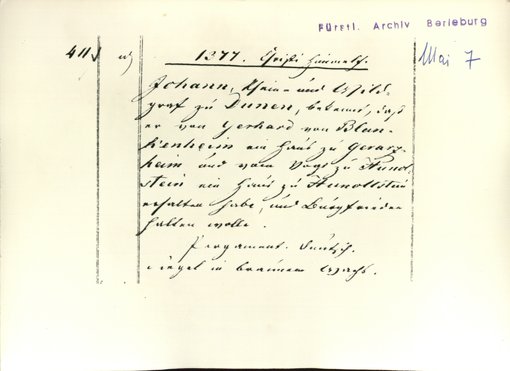 Fürstl. Archiv Berleburg
411 1377. Christi Himmelf. Mai 7
Johann, Rhein- und Wild-
graf zu Dunen, bekennt, daß
er von Gerhard von Blan-
kenheim ein Haus zu Gerarz-
heim und vom Vogt zu Hunolt-
stein ein Haus zu Hunoltstein
erhalten habe, und Burgfrieden
halten wolle.
Pergament. Deutsch.
Siegel in braunem Wachs.